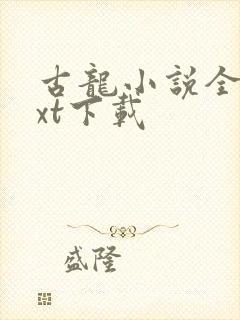 古龍小說全
xt下載
盛隆